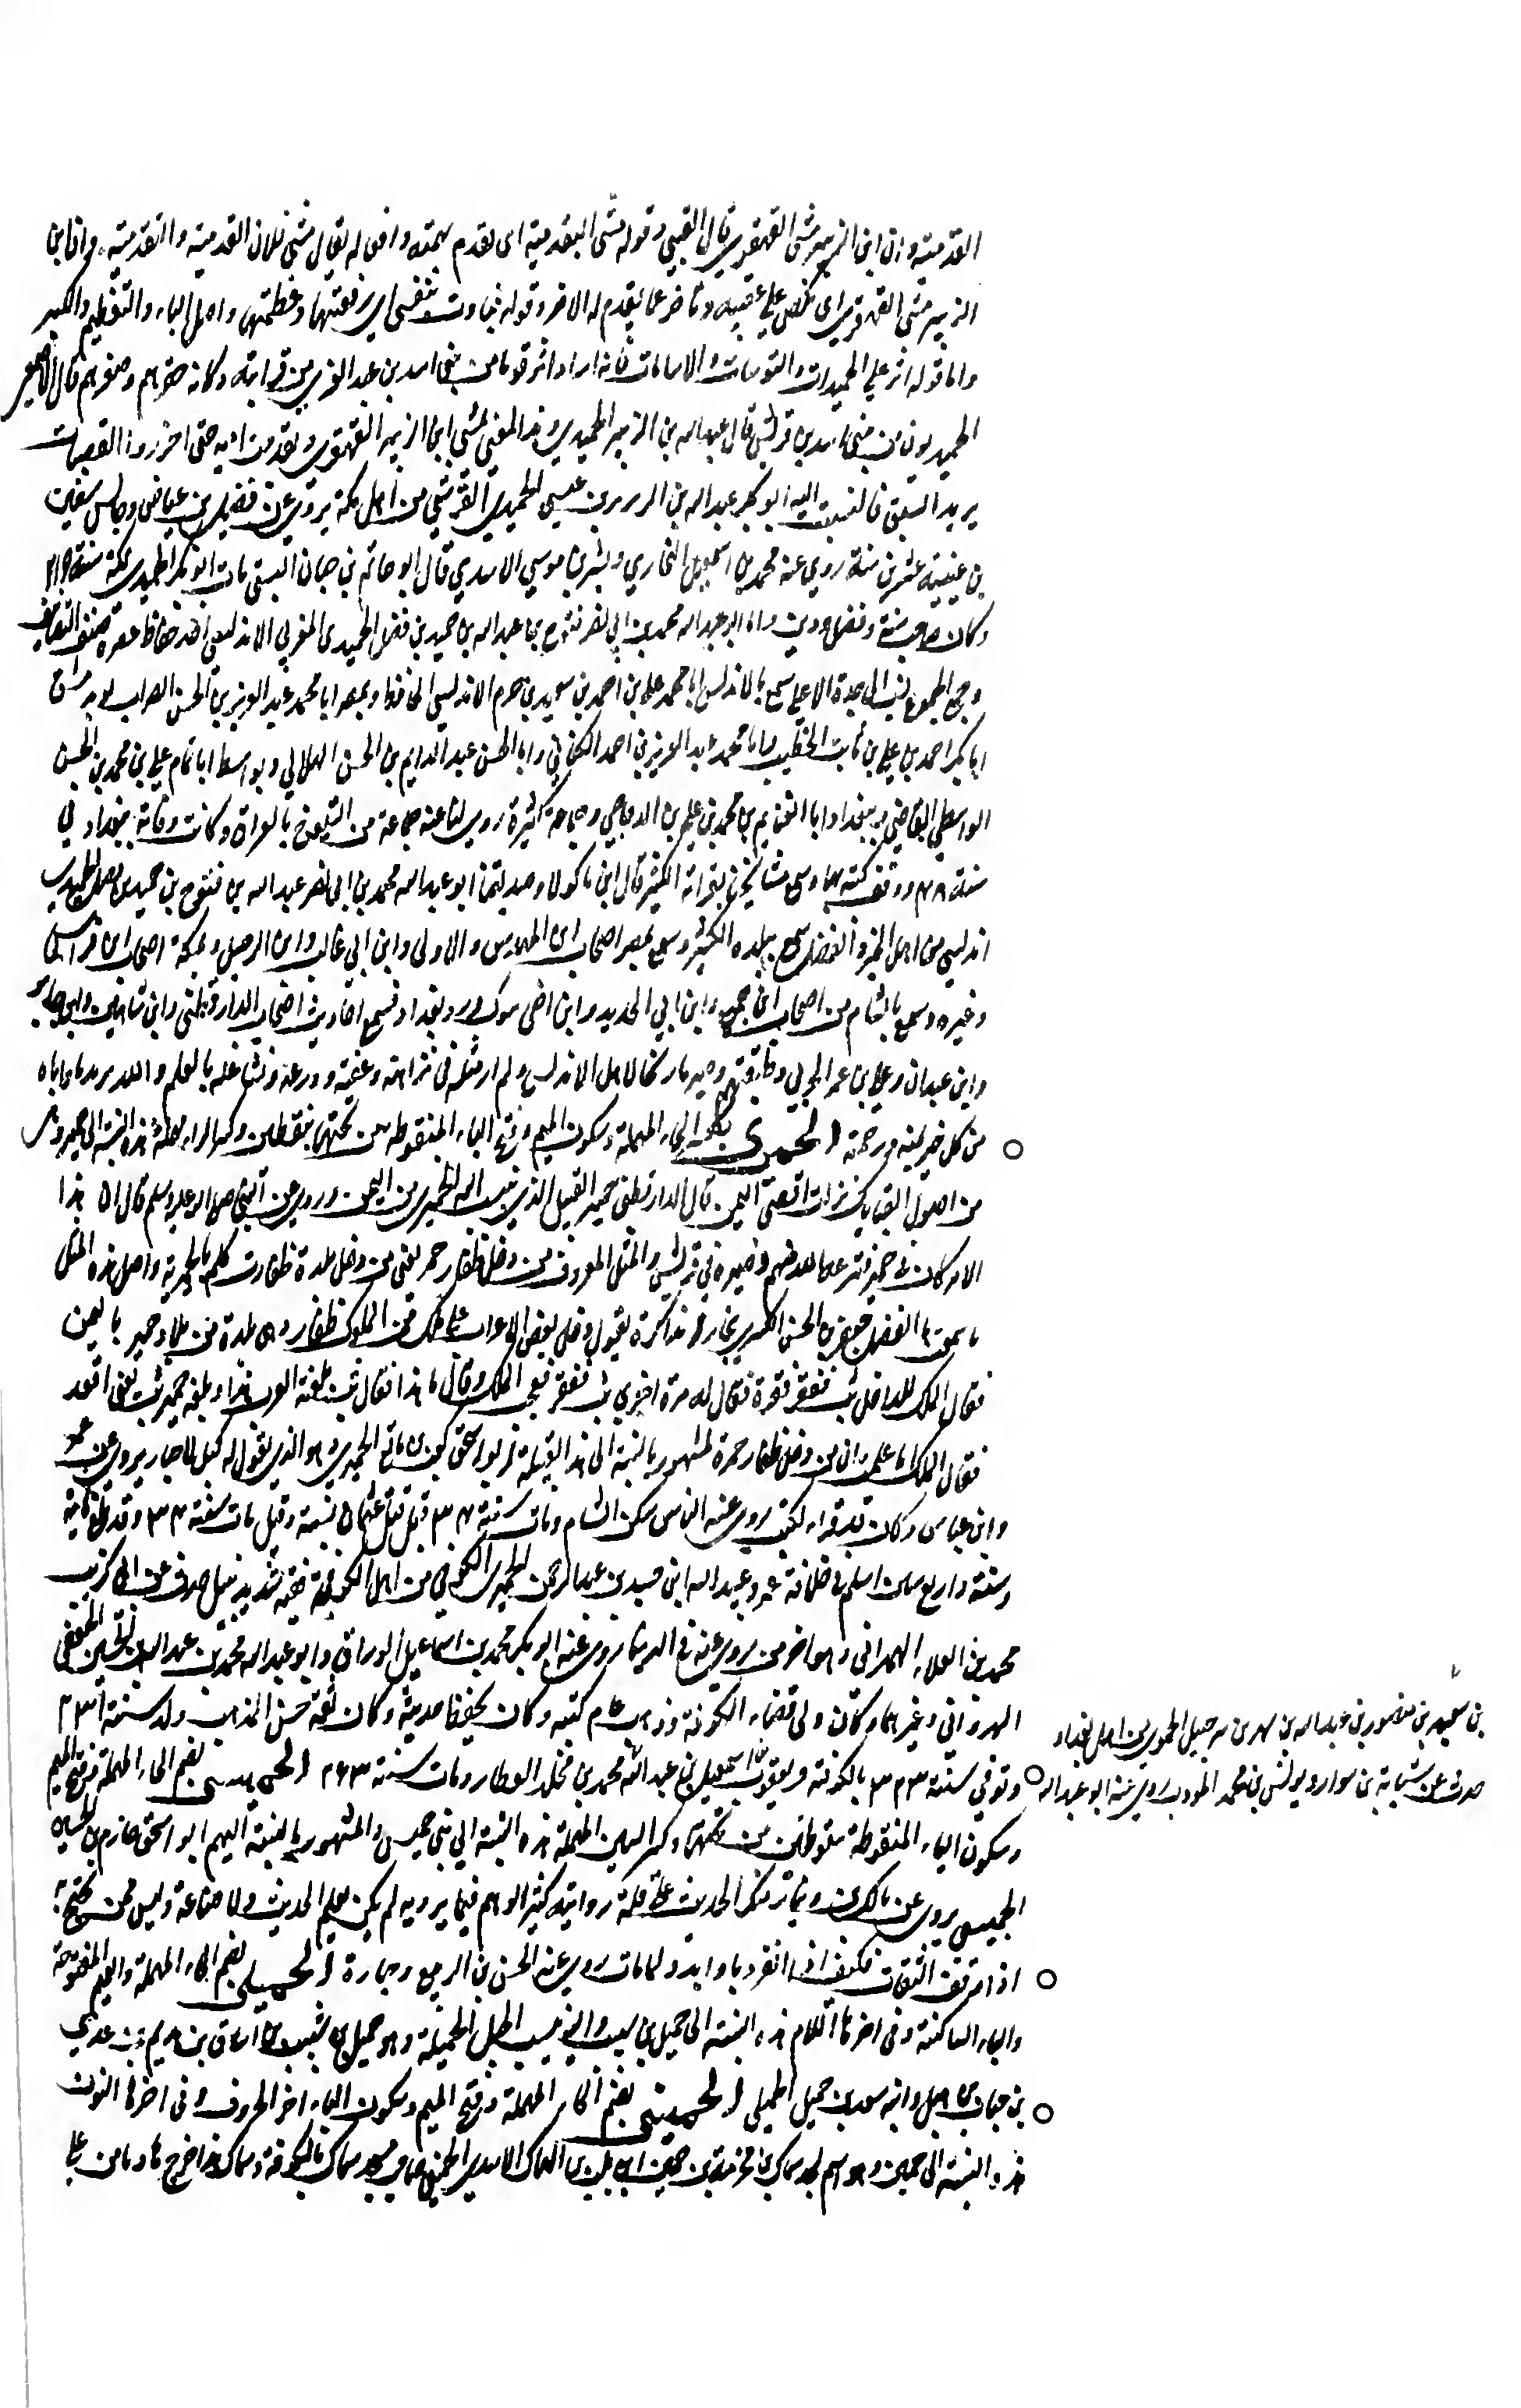 القدمية وان ابن الزبير مشى القهقرى قال القتبي وقوله مشى اليقدمية اى تقدم بهمته وافعاله يقال مشى فلان القدمية والتقدمية واما ابن
الزبير مشى القهقرى اى نكص على عقبيه وتاخر عما يقدم له الاخر وقوله فبأوت بنفسى اى رفعتها وعظمتها واصل البأو التعظيم والكبر
واما قوله اثر علي الحميدات والتويتات والاسامات فانه اراد اثر قوما من بني اسد بن عبد العزى من قرابته وكانه حقرهم وصغرهم قال الاصمعى
الحميديون من بني اسد من قريش قال عبد الله بن الزبير الحميدي وهذا المعنى مشى ابن الزبير القهقرى وتقدمت اميه حتى احرزوا القصبات
يريد السبق فالنسبة اليه ابو بكر عبد الله بن الزبير بن عيسى الحميدي القرشي من اهل مكة يروى عن فضيل بن عياض وجالس سفين
بن عيينه عشرين سنة روي عنه محمد بن اسمعيل البخاري وبشر بن موسي الاسدي قال ابو حاتم بن حبان البستي مات ابو بكر الحميدى بمكة سنة ٢١٩
وكان صاحب سنة وفضل ودين واما ابو عبد الله محمد بن ابي نصر فتوح بن عبد الله بن حميد بن فضل الحميدى المغربي الاندلسي احد حفاظ عصره صنف التصانيف
وجمع الجموع سمع بالاندلس ابا محمد على بن احمد بن سعيد بن حزم الاندلسي الحافظ وبمصر ابا محمد عبد العزيز بن الحسن الضراب وبدمشق
ابا بكر احمد بن علي بن ثابت الخطيب وابا محمد عبد العزيز بن احمد الكتاني وابا الحسن عبد الدايم بن الحسن الهلالي وبواسط ابا تمام علي بن محمد بن الحسن
الواسطي القاضي وببغداد ابا الغنايم بن محمد بن علي بن الدجاجي وجماعة كثيرة روى لنا عنه جماعة من الشيوخ بالعراق وكانت وفاته ببغداد في
سنة ٤٨٨ ووقف كتبه بها وسمع مشايخي بقراته الكثير قال ابن ماكولا وصديقنا ابو عبد الله محمد بن ابي نصر عبد الله بن فتوح بن حميد بن يصل الحميدى
اندلسي من اهل الخير والفضل سمع ببلده الكثير وسمع بمصر اصحاب ابن المهندس والاولى وابن ابي غالب وابن الرحيل وبمكة اصحاب ابن فراس
وغيره وسمع بالشام من اصحاب ابن جميع وابن ابي الحديد وابن اخى ورد بغداد فسمع اصحاب الدارقطنى وابن شاهين وابن حبابة
وابن عبدان وعلي بن عمر الحربي وطبقتهم وصنف تاريخا لاهل الاندلس ولم ار مثله في نزاهته وعفته وورعه وتشاغله بالعلم والله يزيدنا واياه
من كل خير بمنه ورحمته الحميرى بكسر الحاء المهملة وسكون الميم وفتح الياء المنقوطه من تحتها بنقطتين وكسر الراء مهملة هذه النسبة الى حمير وهى
من اصول القبايل نزلت اقصى اليمن قال الدارقطنى حمير القبيل الذي ينسب اليه الحميرى من اليمن وروى عن النبي صلى الله عليه وسلم قال ان هذا
الامر كان في حمير فنزعه الله منهم وصيره في قريش والمثل المعروف من دخل ظفار حمر يعنى من دخل بلدة ظفار تكلم بالحميرية واصل هذه المثل
ما سمعت ابا الفضل جعفر بن الحسن الكبيري ببخارا مذاكرة يقول دخل بعض الاعراب على ملك من الملوك ظفار وهى بلدة من بلاد حمير باليمن
فقال الملك للداخل ثب فقفز قفزة فقال له مرة اخرى ثب فقفز فعجب الملك وقال ما هذا فقال ثب بلغة العرب هذا وبلغه حمير ثب يعنى اقعد
فقال الملك اما علمت ان من دخل ظفار حمر والمشهور بالنسبة الى هذه القبيلة ابو اسحق كعب بن ماتع الحميري وهو الذي يقول له كعب الاحبار يروى عن عمر
وابن عباس وكان قد قراء الكتب روى عنه الناس سكن الشام ومات سنة ٣٤ قبل قتل عثمان بسنة وقيل مات سنة ٣٢ وقد بلغ ماية
وسنة واربع سنين اسلم في خلافة عمر وعبيد الله ابن حميد بن عبد الرحمن الحميرى الكوفي من اهل الكوفة فقيه شديد نبيل حدث عن ابى كريب
محمد بن العلاء الهمدانى وهو اخر من روى عنه في الدنيا روى عنه ابو بكر محمد بن اسماعيل الوراق وابو عبد الله محمد بن عبد الله بن الحسين الجعفى
الهروانى وغيرهما وكان ولى قضاء الكوفة وذهب عام كتبه وكان يحفظ حديثه وكان ثقة حسن المذهب ولد سنة ٢٣١
وتوفي سنة ٣٢٣ بالكوفة ويعقوب بن اسمعيل بن عبد الله محمد بن مخلد العطار ومات سنة ٢٦٣ الحميسى بضم الحاء المهملة وفتح الميم
بن سعيد بن منصور بن عبد الله بن شهر بن شرحبيل الحميري من اهل بغداد
حدث عن شبابة بن سوار ويونس بن محمد المودب روى عنه ابو عبد الله
وسكون الياء المنقوطة بنقطتين من تحتها وكسر السين المهملة هذه النسبة الي بني حميس والمشهور بالنسبة اليهم ابو اسحق خازم بن الحسين
الحميسى يروى عن مالك بن دينار منكر الحديث على قلة روايته كثير الوهم فيما يرويه لم يكن يعلم الحديث ولا صناعة وليس ممن يحتج به
اذا وافق الثقات فكيف اذا انفرد باوابد وطامات روى عنه الحسن بن الربيع وجبارة الحميلى بضم الحاء المهملة والميم المفتوحة
والياء الساكنة وفي اخرها اللام هذه النسبة الى حميل بن شبيب واليه ينسب الخيل الحميلة وهو حميل بن شبيب بن اساف بن هذيم بن عدى
بن جناب بن هبل وابنه سعد بن حميل الحميلى الحمينى بضم الحاء المهملة وفتح الميم وسكون الياء اخر الحروف وفى اخرها النون
هذه النسبة الى حمين وهو اسم لجد سماك بن مخرمة بن حمين بن الهالك الاسدي الحميني صاحب مسجد سماك بالكوفة وسماك هذا خرج هاربا من على